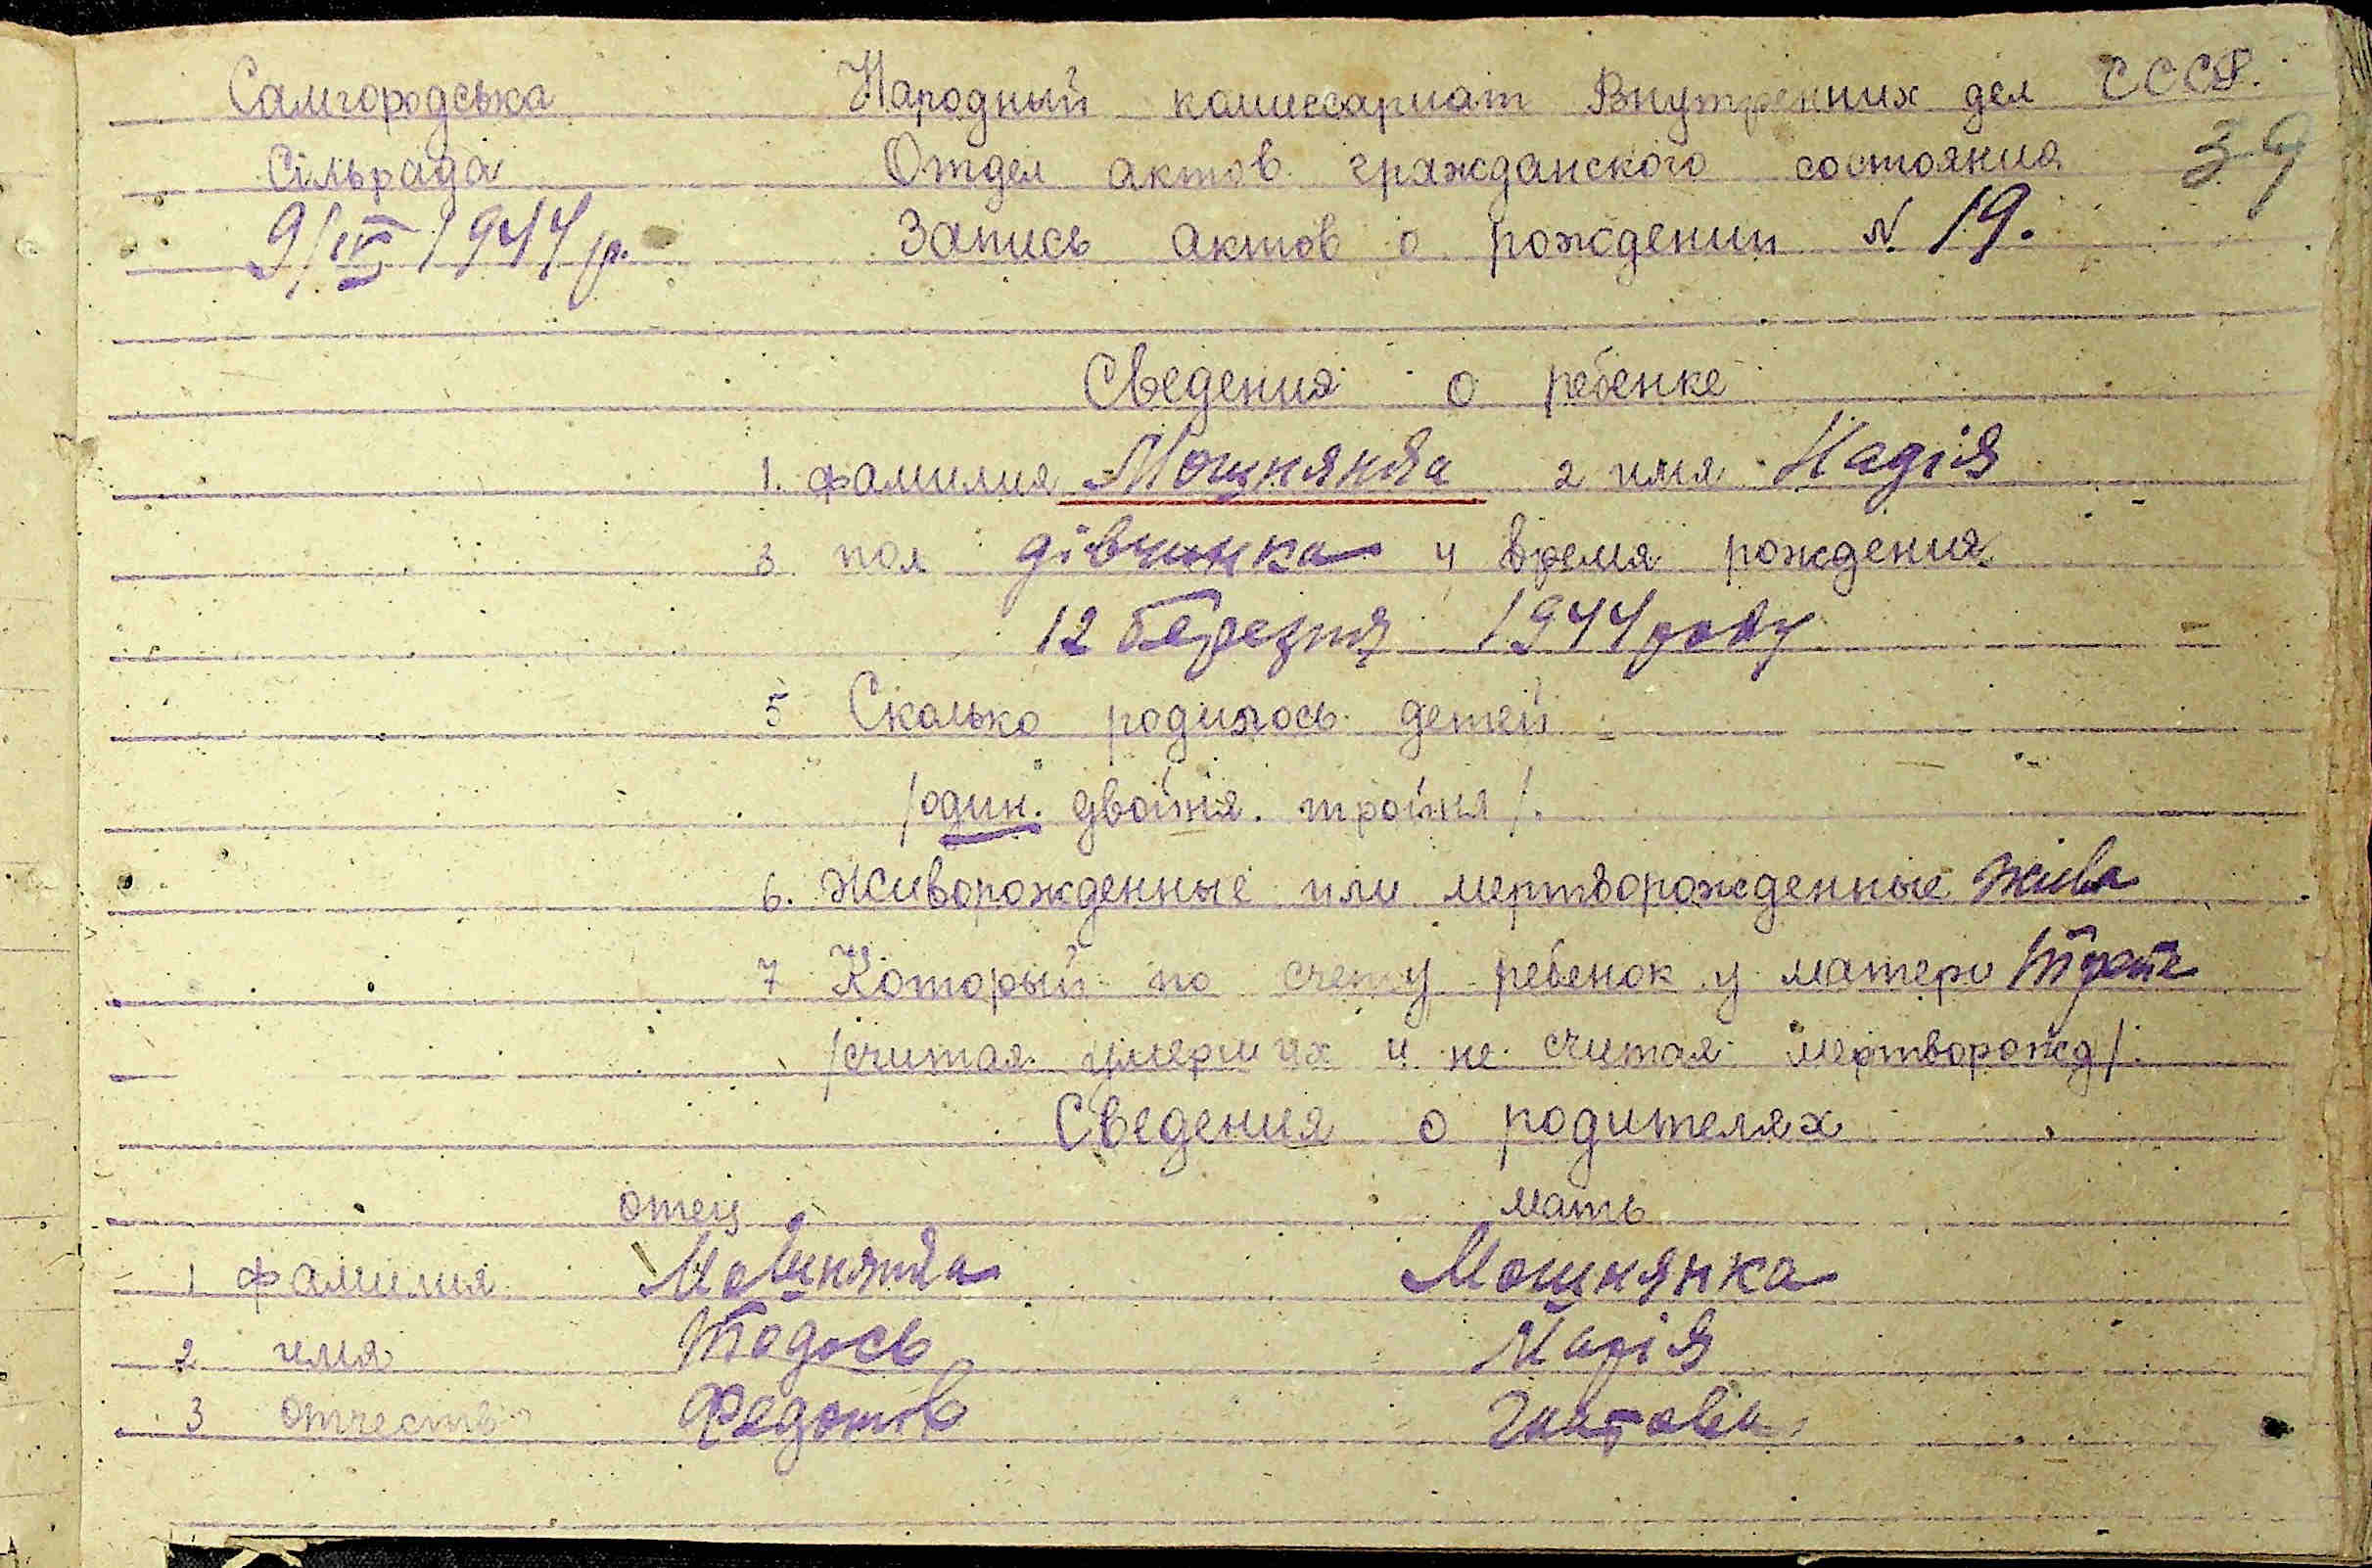 Самгородська Народный комиссариат Внутренних дел СССР.
Сільрада Отдел актов гражданского состояния 39
9/IV 1944 р. Запись актов о рождении N 19.
Сведения о ребенке
1. фамилия Мошнянка 2 имя Надія
3 пол дівчинка 4 время рождения
12 березня 1944 году
5 Сколько родилось детей
/один. двойня. тройня/.
6. Живорожденные или мертворожденные жива
7 Который по счету ребенок у матери
/считая умерших и не считая мертворожд/.
Сведения о родителях
отец мать
1 фамилия Мошнянка Мошнянка
2 имя Тодось Марія
3 отчество Федотов